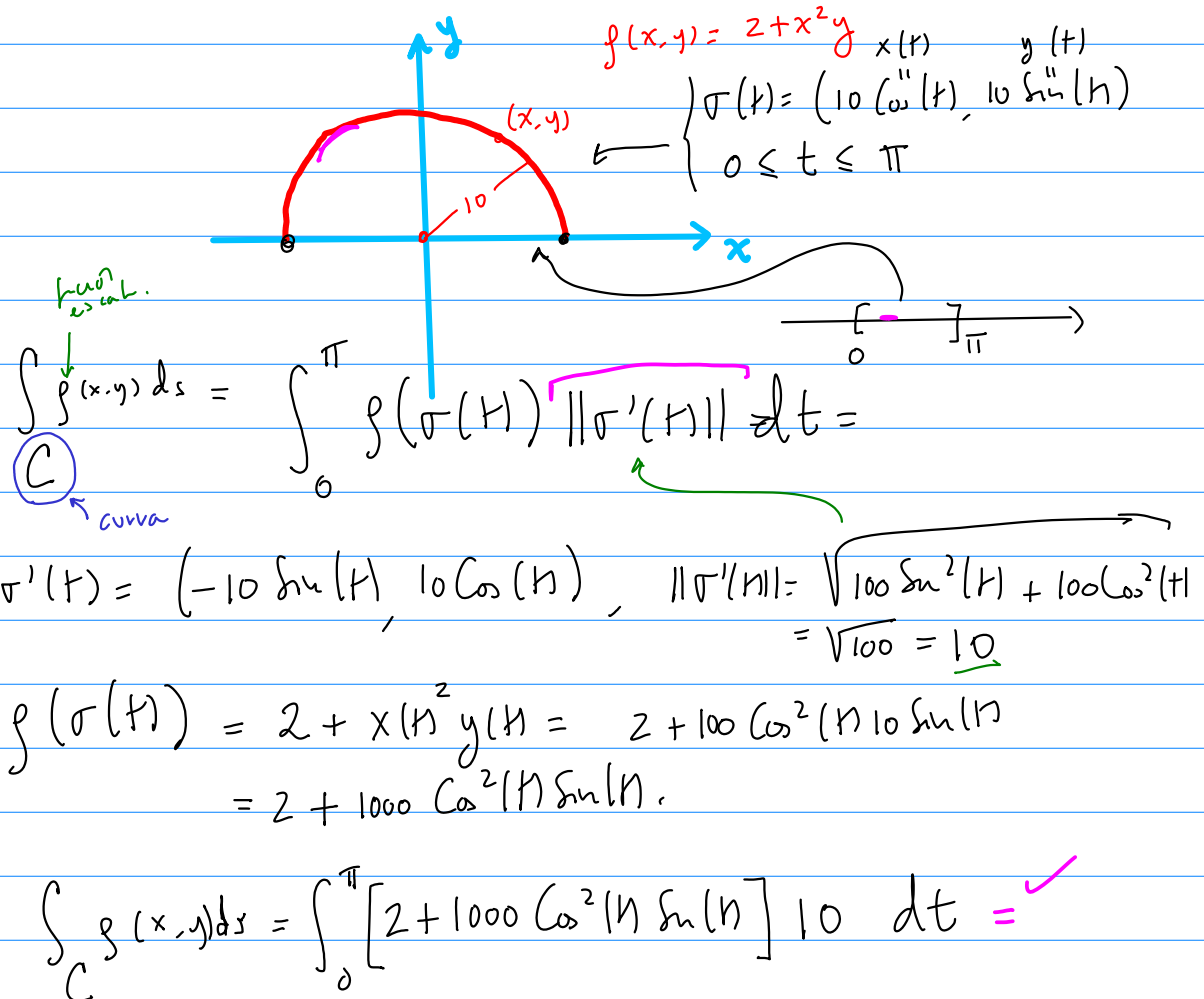 y
ρ(x,y) = 2+x²y
x(t) y(t)
" "
σ(t) = (10 Cos(t), 10 Sin(t))
0 ≤ t ≤ π
(x,y)
10
x
0 π
escal.
∫_C ρ(x,y) ds = ∫_0^π ρ(σ(t)) ||σ'(t)|| dt =
curva
σ'(t) = (-10 Sin(t), 10 Cos(t)), ||σ'(t)|| = √100 Sin²(t) + 100 Cos²(t)
= √100 = 10
ρ(σ(t)) = 2 + x(t)² y(t) = 2 + 100 Cos²(t) 10 Sin(t)
= 2 + 1000 Cos²(t) Sin(t).
∫_C ρ(x,y) ds = ∫_0^π [2 + 1000 Cos²(t) Sin(t)] 10 dt = ✓